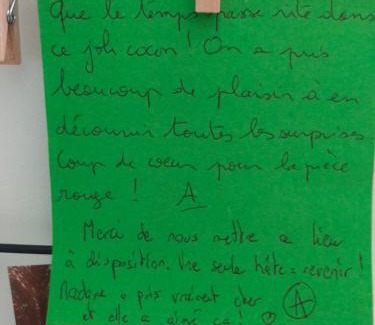 Que le temps passe vite dans
ce joli cocon ! On a pris
beaucoup de plaisir à en
découvrir toutes les surprises.
Coup de coeur pour la pièce
rouge ! A
Merci de nous mettre ce lieu
à disposition. Une seule hâte = revenir !
Madame a pris vraiment cher A
et elle a aimé ça ! ♡